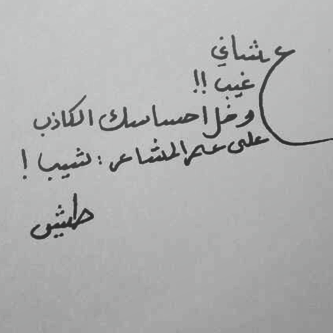 عشاني
غيب !!
وخل احساسك الكاذب
على عمر المشاعر : يشيب !
طيش